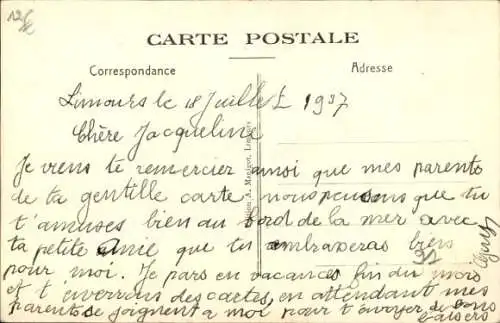 CARTE POSTALE
Correspondance
Adresse
Limours le 18 Juillet 1937
Chère Jacqueline
Je viens te remercier ainsi que mes parents
de ta gentille carte nous pensons que tu
t'amuses bien au bord de la mer avec
ta petite amie que tu embrasseras bien
pour moi. Je pars en vacances fin du mois
et t'enverrons des cartes, en attendant mes
parents se joignent a moi pour t'envoyer de bons
baisers